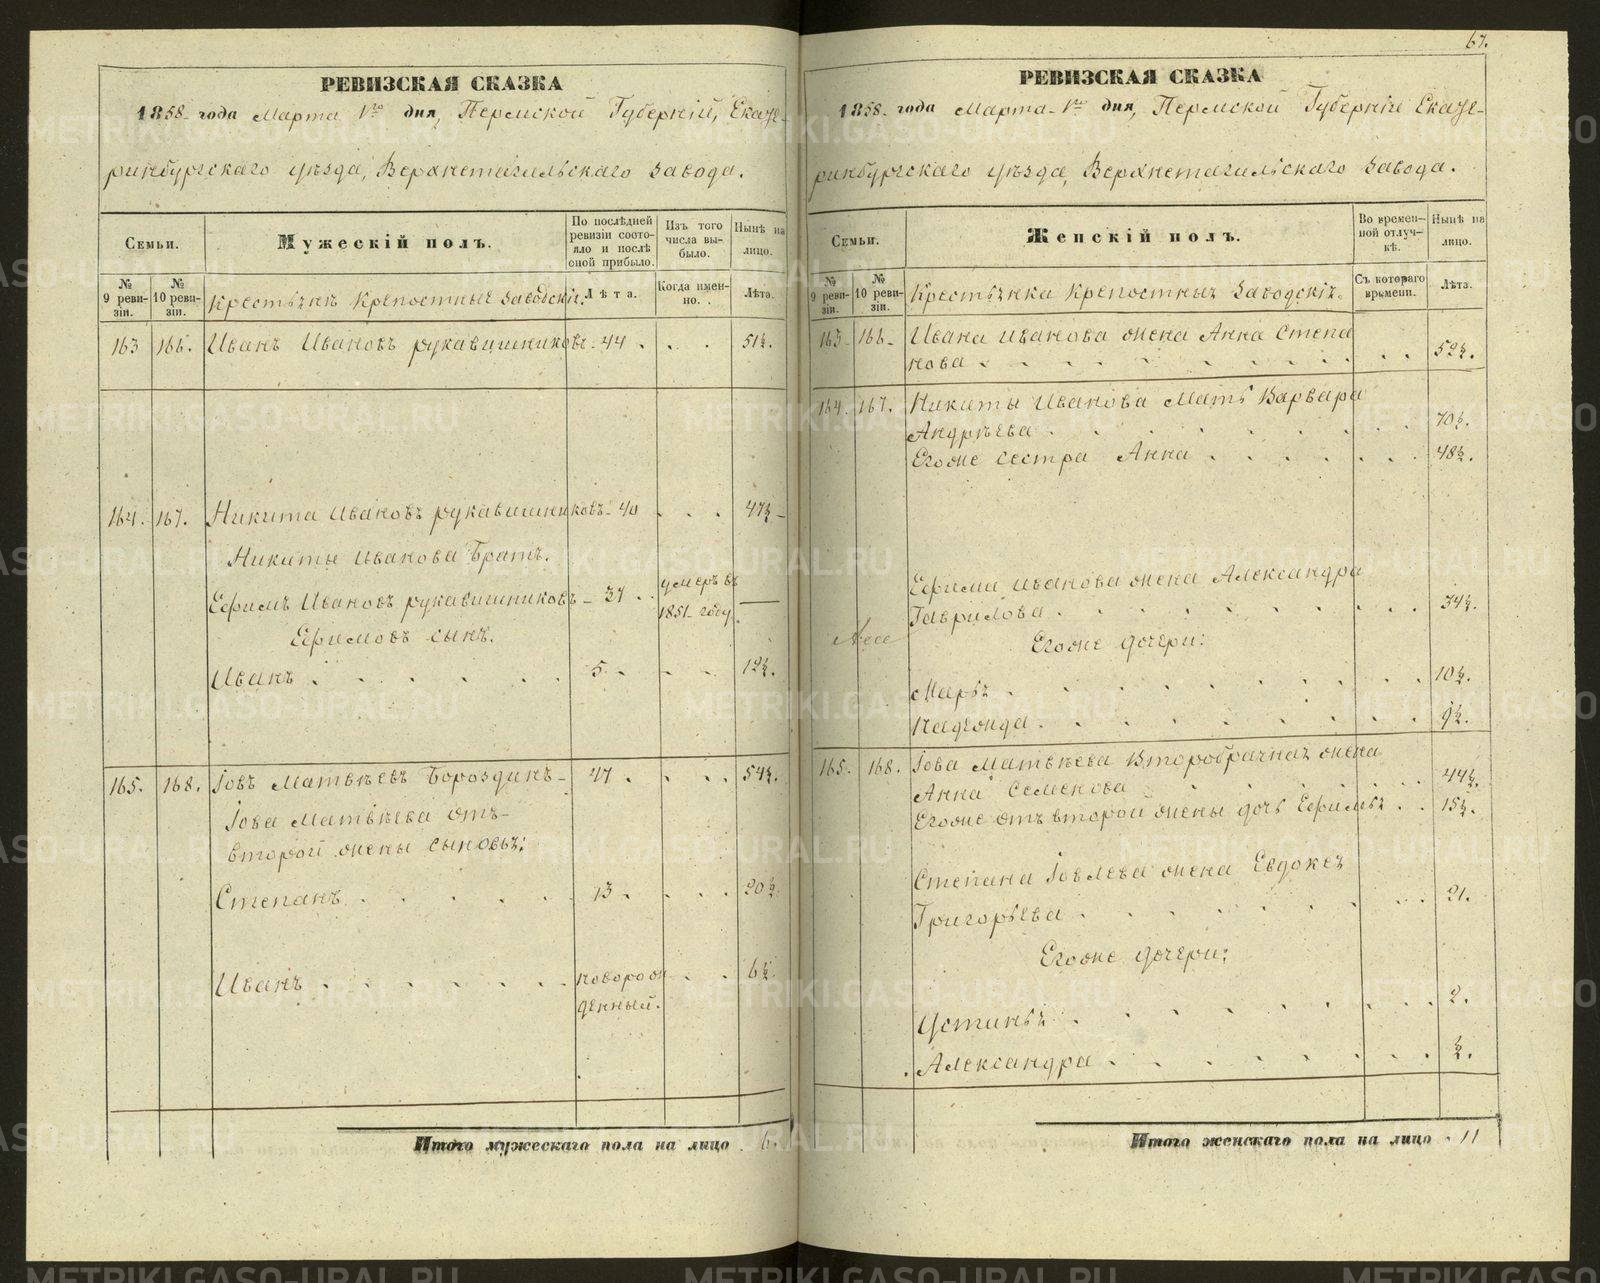 РЕВИЗСКАЯ СКАЗКА
1858 года Марта 1го дня, Пермской Губерніи, Екате-
ринбургскаго уѣзда, Верхнетагильскаго завода.
Семьи.
Мужескій полъ.
По послѣдней ревизіи состояло и послѣ оной прибыло.
Изъ того числа выбыло.
Нынѣ на лицо.
№ 9 ревизіи.
№ 10 ревизіи.
Крестьяне Крепостные Заводскіе.
Лѣта.
Когда именно.
Лѣта.
163 166. Иванъ Ивановъ рукавишниковъ - 44 . . . 51½.
164. 167. Никита Ивановъ рукавишниковъ - 40 . . . 47½ -
Никиты Иванова Братъ.
Ефимъ Ивановъ рукавишниковъ - 37 . . умеръ въ 1851 году. —
Ефимовъ сынъ.
Иванъ . . . . . 5 . . . 12½.
165. 168. Іовъ Матвѣевъ Бороздинъ - 47 . . . 54½.
Іова Матвѣева отъ-
второй жены сыновья:
Степанъ . . . . . 13 . . . 20½
Иванъ . . . . . новорож- . . 6½
денный.
Итого мужескаго пола на лицо 6.
67.
РЕВИЗСКАЯ СКАЗКА
1858 года Марта 1го дня, Пермской Губерніи Екате-
ринбургскаго уѣзда, Верхнетагильскаго завода.
Семьи.
Женскій полъ.
Во временной отлучкѣ.
Нынѣ на лицо.
№ 9 ревизіи.
№ 10 ревизіи.
Крестьянка Крепостныхъ Заводскихъ.
Съ котораго времени.
Лѣта.
163 166 Ивана Иванова жена Анна Степа
нова . . . . . . . . . 52½.
164. 167. Никиты Иванова Мать Варвара
Андрѣева . . . . . . . . 70½.
Егоже сестра Анна . . . . . . . 48½.
Ефима Иванова жена Александра
Гаврилова . . . . . . . . 34½.
Егоже дочери:
Марья . . . . . . . . . 10½.
Надежда . . . . . . . . . 9½.
165. 168. Іова Матвѣева Второбрачная жена
Анна Семенова . . . . 44½.
Егоже отъ второй жены дочь Ефимья . . 15½.
Степана Іовлева жена Евдокея
Григорьева . . . . . . . . 21.
Егоже дочери:
Устинья . . . . . . . . 2.
Александра . . . . . . . . ½.
Итого женскаго пола на лицо . 11
METRIKI.GASO-URAL.RU